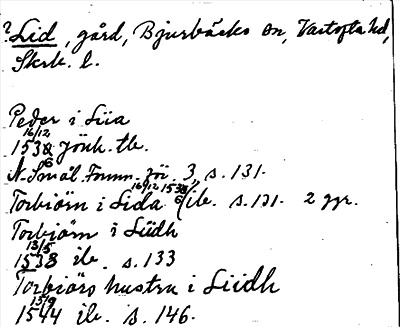 ? Lid, gård, Bjurbäcks sn, Vartofta hd,
Skrb. l.
Peder i Liia
16/12 1538 Jönk. tb.
N. Smål. Fornm. för. 3, s. 131.
Torbiörn i Lida 16/12 1538/6 ib. s. 131. 2 ggr.
Torbiörn i Liidh
13/5 1538 ib. s. 133
Torbiörs hustru i Liidh
15/9 1544 ib. s. 146.